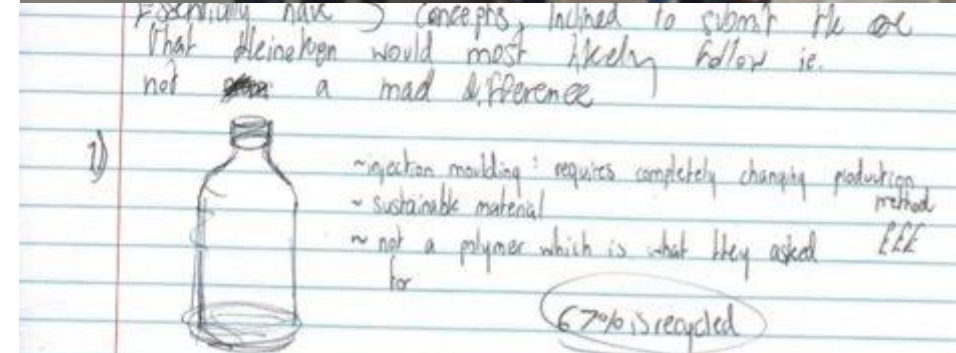 Essentially have 3 concepts, Inclined to submit the one
that would most likely follow ie.
not a mad difference
1)
~injection moulding : requires completely changing production method
~ sustainable material
~ not a polymer which is what they asked £££
for
67% is recycled